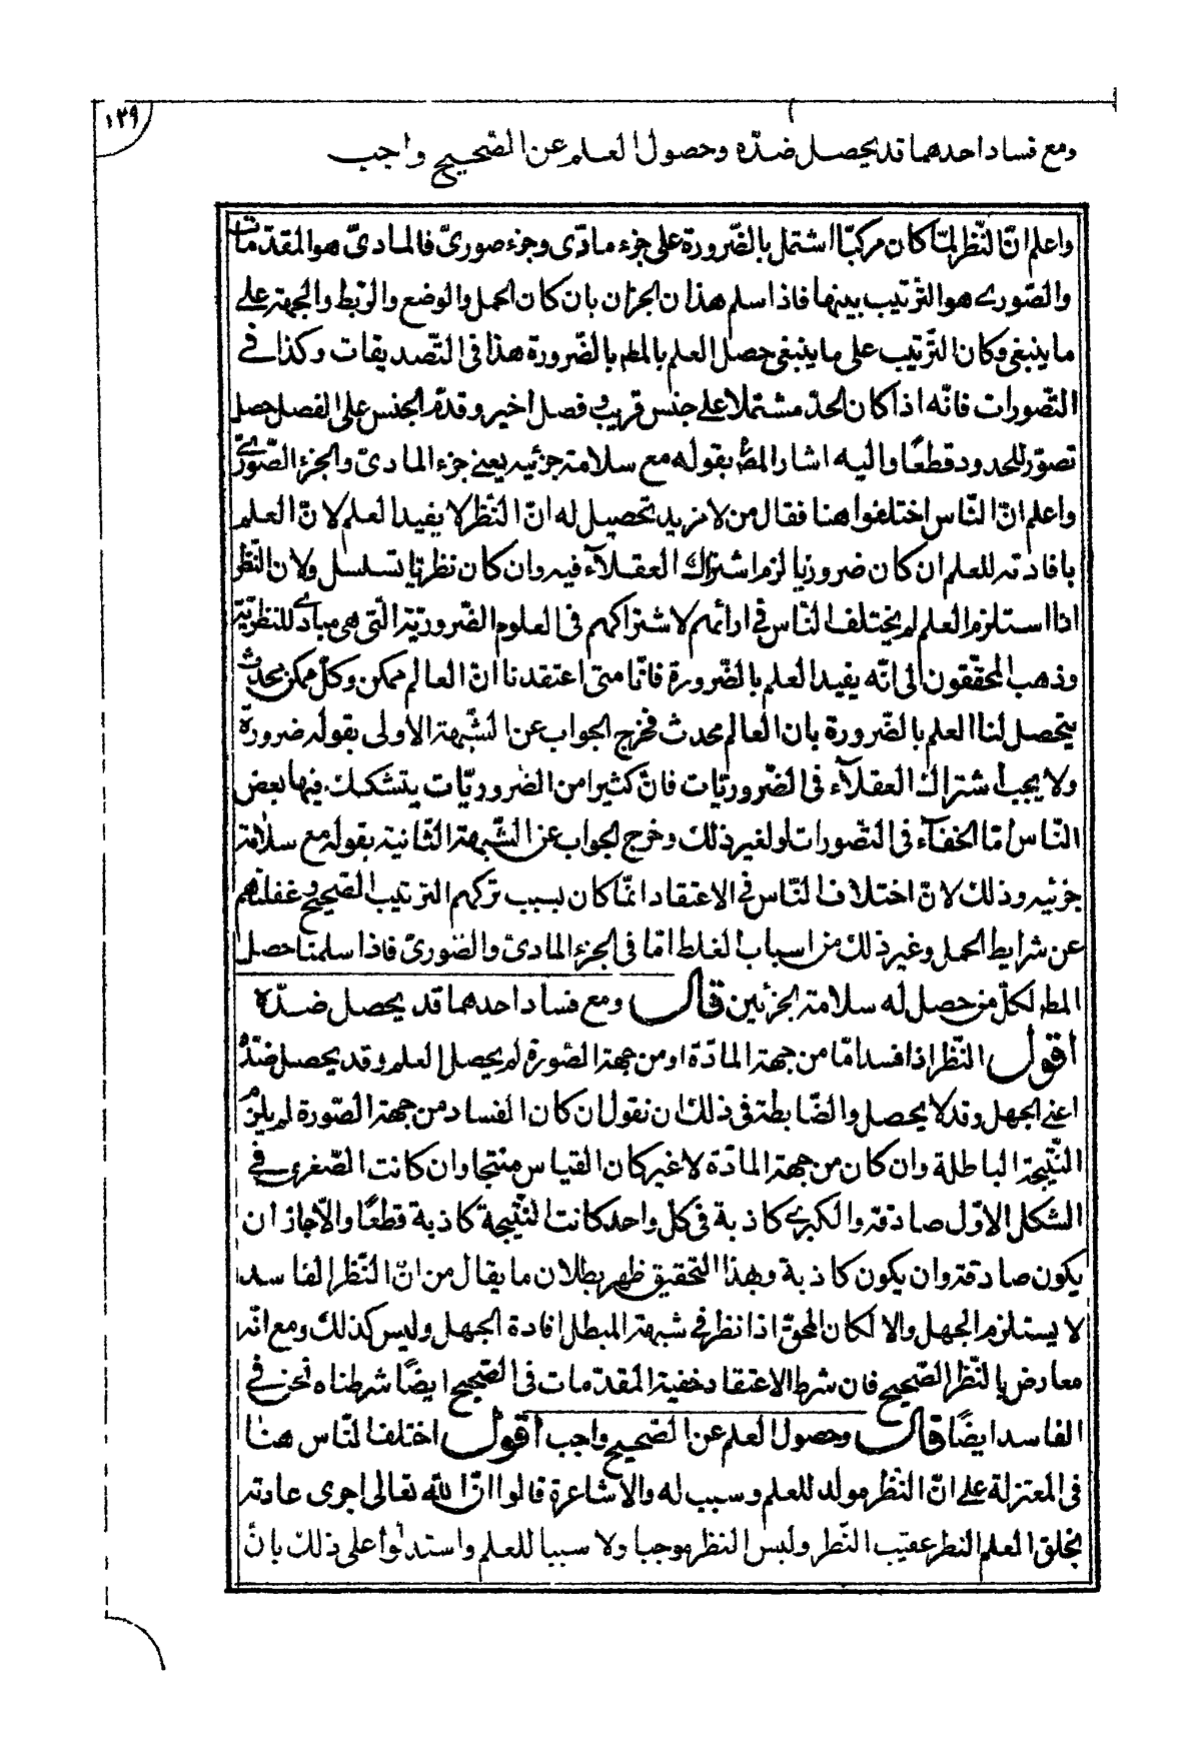 ١٢٩
ومع فساد احدهما قد يحصل ضدّه وحصول العلم عن الصّحيح واجب
واعلم انّ النّظر لمّا كان مركّبا اشتمل بالضّرورة على جزء مادّى وجزء صورىّ فالمادىّ هو المقدّمات
والصّورى هو الترتيب بينها فاذا سلم هذان الجزءان بان كان الحمل والوضع والرّبط والجهة على
ما ينبغى وكان الترّتيب على ما ينبغى حصل العلم بالمطم بالضّرورة هذا فى التّصديقات وكذا فى
التّصورات فانّه اذا كان الحدّ مشتملا على جنس قريب و فصل اخير وقدّم الجنس على الفصل حصل
تصوّر للمحدود قطعًا واليه اشار المصّ بقوله مع سلامة جزئيه يعنى جزء المادىّ والجزء الصّورىّ
واعلم انّ النّاس اختلفوا هنا فقال من لا مزيد تحصيل له انّ النّظر لا يفيد العلم لانّ العلم
بافادته للعلم ان كان ضروريا لزم اشتراك العقلآء فيه وان كان نظريا تسلسل ولان النّظر
اذا استلزم العلم لم يختلف النّاس فى ارائهم لاشتراكهم فى العلوم الضّروريّة الّتى هى مبادى للنظريّة
وذهب المحقّقون الى انّه يفيد العلم بالضّرورة فانّا متى اعتقدنا انّ العالم ممكن وكلّ ممكن محدث
يتحصل لنا العلم بالضّرورة بان العالم محدث فخرج الجواب عن الشّبهة الاولى بقوله ضرورة
ولا يجب اشتراك العقلآء فى الضّروريّات فانّ كثيرا من الضّروريّات يتشكك فيها بعض
النّاس امّا لخفآء فى التصّورات او لغير ذلك وخرج الجواب عن الشّبهة الثّانية بقوله مع سلامة
جزئيه وذلك لانّ اختلاف النّاس فى الاعتقاد انّما كان بسبب تركهم الترتيب الصّحيح و غفلتهم
عن شرايط الحمل وغير ذلك من اسباب الغلط امّا فى الجزء المادىّ والصّورىّ فاذا سلمتا حصل
المطم لكلّ من حصل له سلامة الجزئين قال ومع فساد احدهما قد يحصل ضدّه
اقول النّظر اذا فسد امّا من جهة المادّة او من جهة الصّورة لم يحصل العلم وقد يحصل ضدّه
اعنى الجهل وقد لا يحصل والضّابطة فى ذلك ان نقول ان كان الفساد من جهة الصّورة لم يلزم
النّتيجة الباطلة وان كان من جهة المادّة لا غير كان القياس منتجا وان كانت الصّغرى فى
الشكل الاوّل صادقة والكبرى كاذبة فى كل واحد كانت النّتيجة كاذبة قطعًا والّا جاز ان
يكون صادقة وان يكون كاذبة وبهذا التحقيق ظهر بطلان ما يقال من انّ النّظر الفاسد
لا يستلزم الجهل والا لكان المحقّ اذا نظر فى شبهة المبطل افادة الجهل وليس كذلك ومع انّه
معارض بالنّظر الصّحيح فان شرط الاعتقاد حقية المقدّمات فى الصّحيح ايضًا شرطناه نحن فى
الفاسد ايضًا قال وحصول العلم عن الصّحيح واجب اقول اختلف النّاس هنا
فى المعتزلة على انّ النّظر مولد للعلم وسبب له والاشاعرة قالوا انّ الله تعالى اجرى عادته
بخلق العلم النظر عقيب النّظر وليس النظر موجبا ولا سببا للعلم واستدلّوا على ذلك بانّ